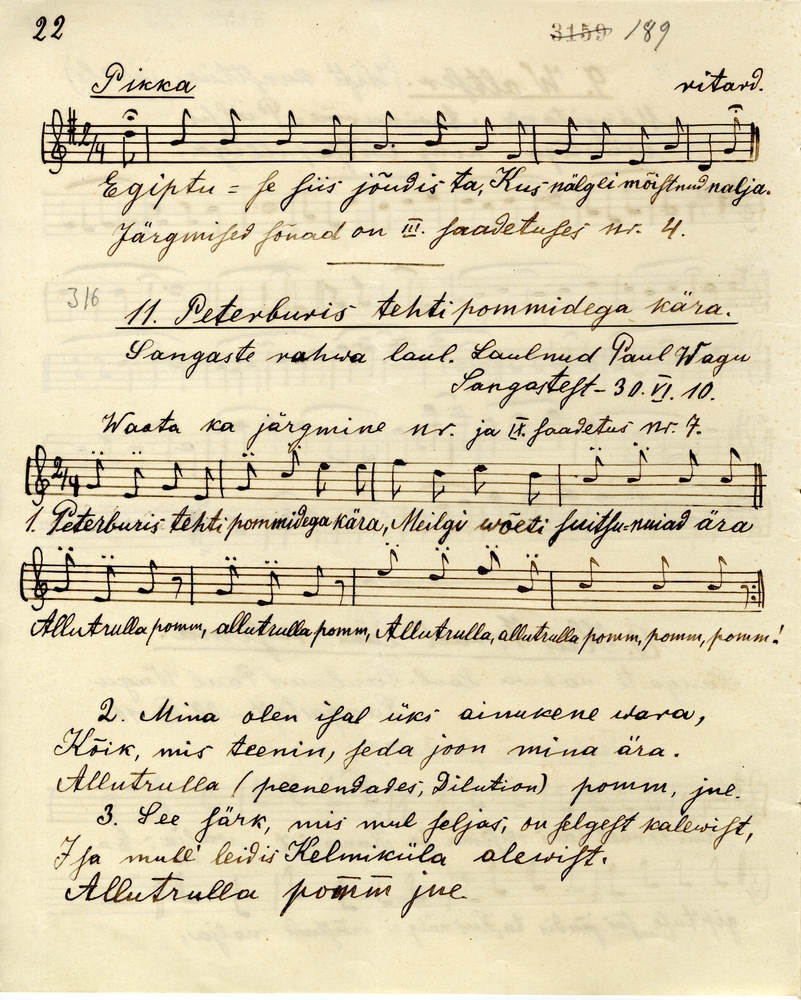 22
3159 189
Pikka ritard.
2/4
Egiptu = se siis jõudis ta, Kus nälg ei mõistnud nalja.
Järgmised sõnad on III. saadetuses nr. 4.
316
11. Peterburis tehti pommidega kära.
Sangaste rahwa laul. Laulnud Paul Wagu
Sangastest – 30. VI. 10.
Waata ka järgmine nr. ja IX. saadetus nr. 7.
2/4
1. Peterburis tehti pommidega kära, Meilgi wõeti suitsu=nuiad ära
Allutrulla pomm, allutrulla pomm, Allutrulla, allutrulla pomm, pomm, pomm!
2. Mina olen isal üks ainukene wara,
Kõik, mis teenin, seda joon mina ära.
Allutrulla (peenendades, Dilution) pomm, jne.
3. See särk, mis mul seljas, on selgest kalewist,
Isa mull' leidis Kelmiküla alewist.
Allutrulla pomm jne